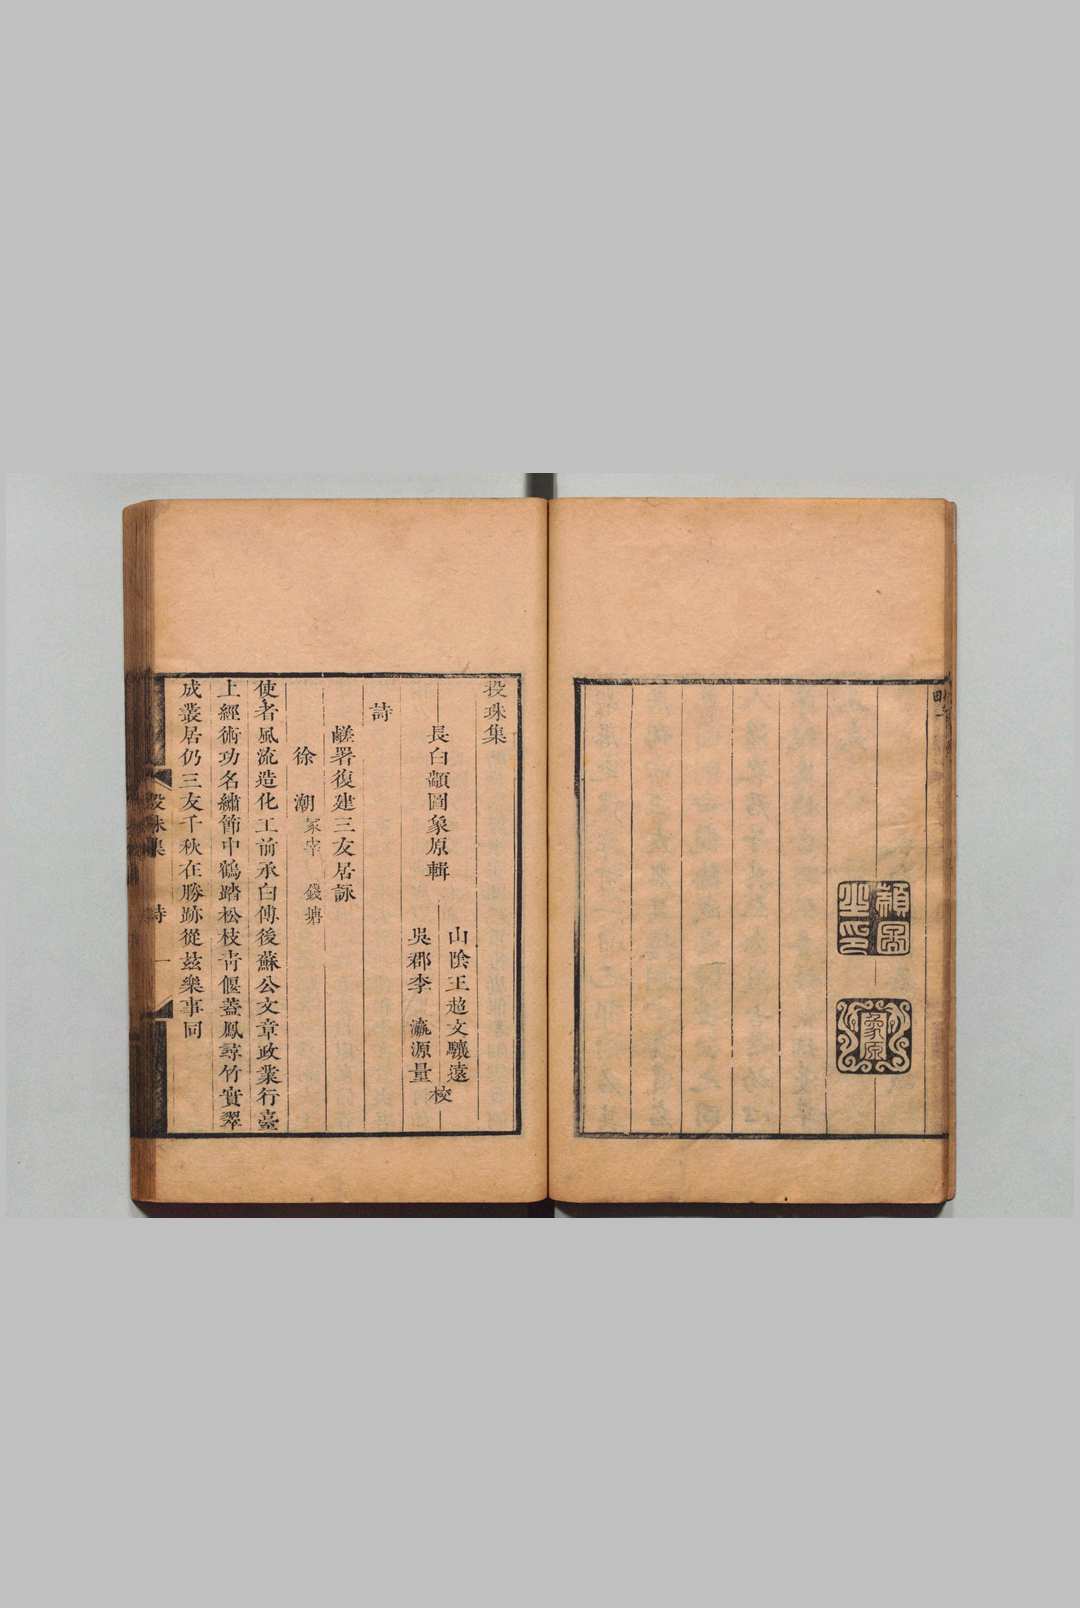 顓圖之印
象原
投珠集
長白顓圖象原輯
山陰王超文驤遠
吳郡李瀛源量
校
詩
鹺署復建三友居詠
徐潮冢宰 錢塘
使者風流造化工前承白傅後蘇公文章政業行臺
上經術功名繡節中鶴踏松枝青偃蓋鳳尋竹實翠
成叢居仍三友千秋在勝跡從茲樂事同
投珠集 詩 一